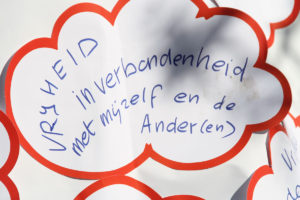 VRYHEID
in verbondenheid
met mijzelf en de
Ander(en)